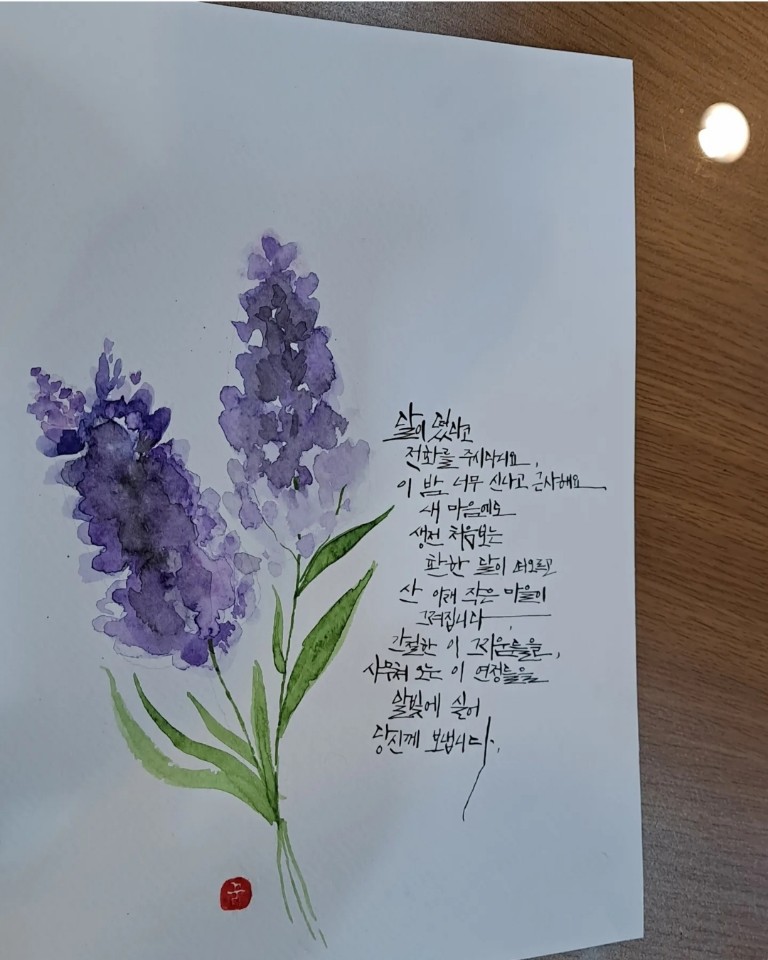 달이 떴다고
전화를 주시다니요,
이 밤 너무 신나고 근사해요
새 마음에도
생전 처음보는
환한 달이 떠오르고
산 아래 작은 마을이
그려집니다.
간절한 이 그리움들을,
사무쳐 오는 이 연정들을
달빛에 실어
당신께 보냅니다.